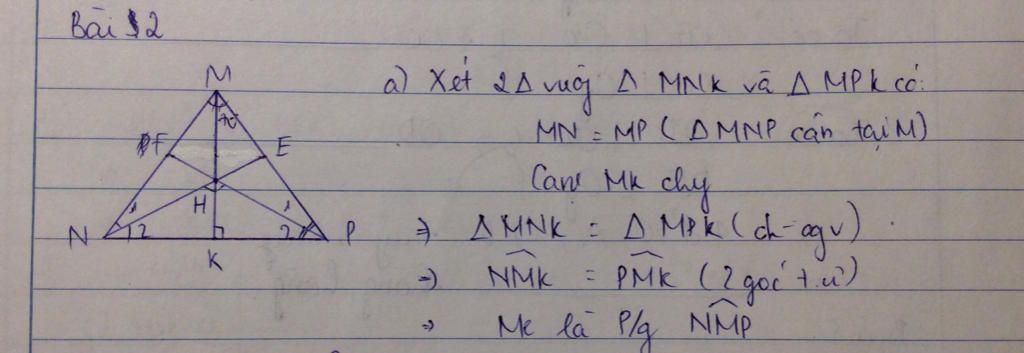 Bài 2
M
F
E
H
N
1
2
1
2
P
K
a) Xét 2Δ vuông Δ MNK và Δ MPK có:
MN = MP (Δ MNP cân tại M)
Cạnh MK chg
⇒ Δ MNK = Δ MPK (ch-cgv)
⇒ NMK = PMK (2 góc t.ứ)
⇒ MK là P/g NMP